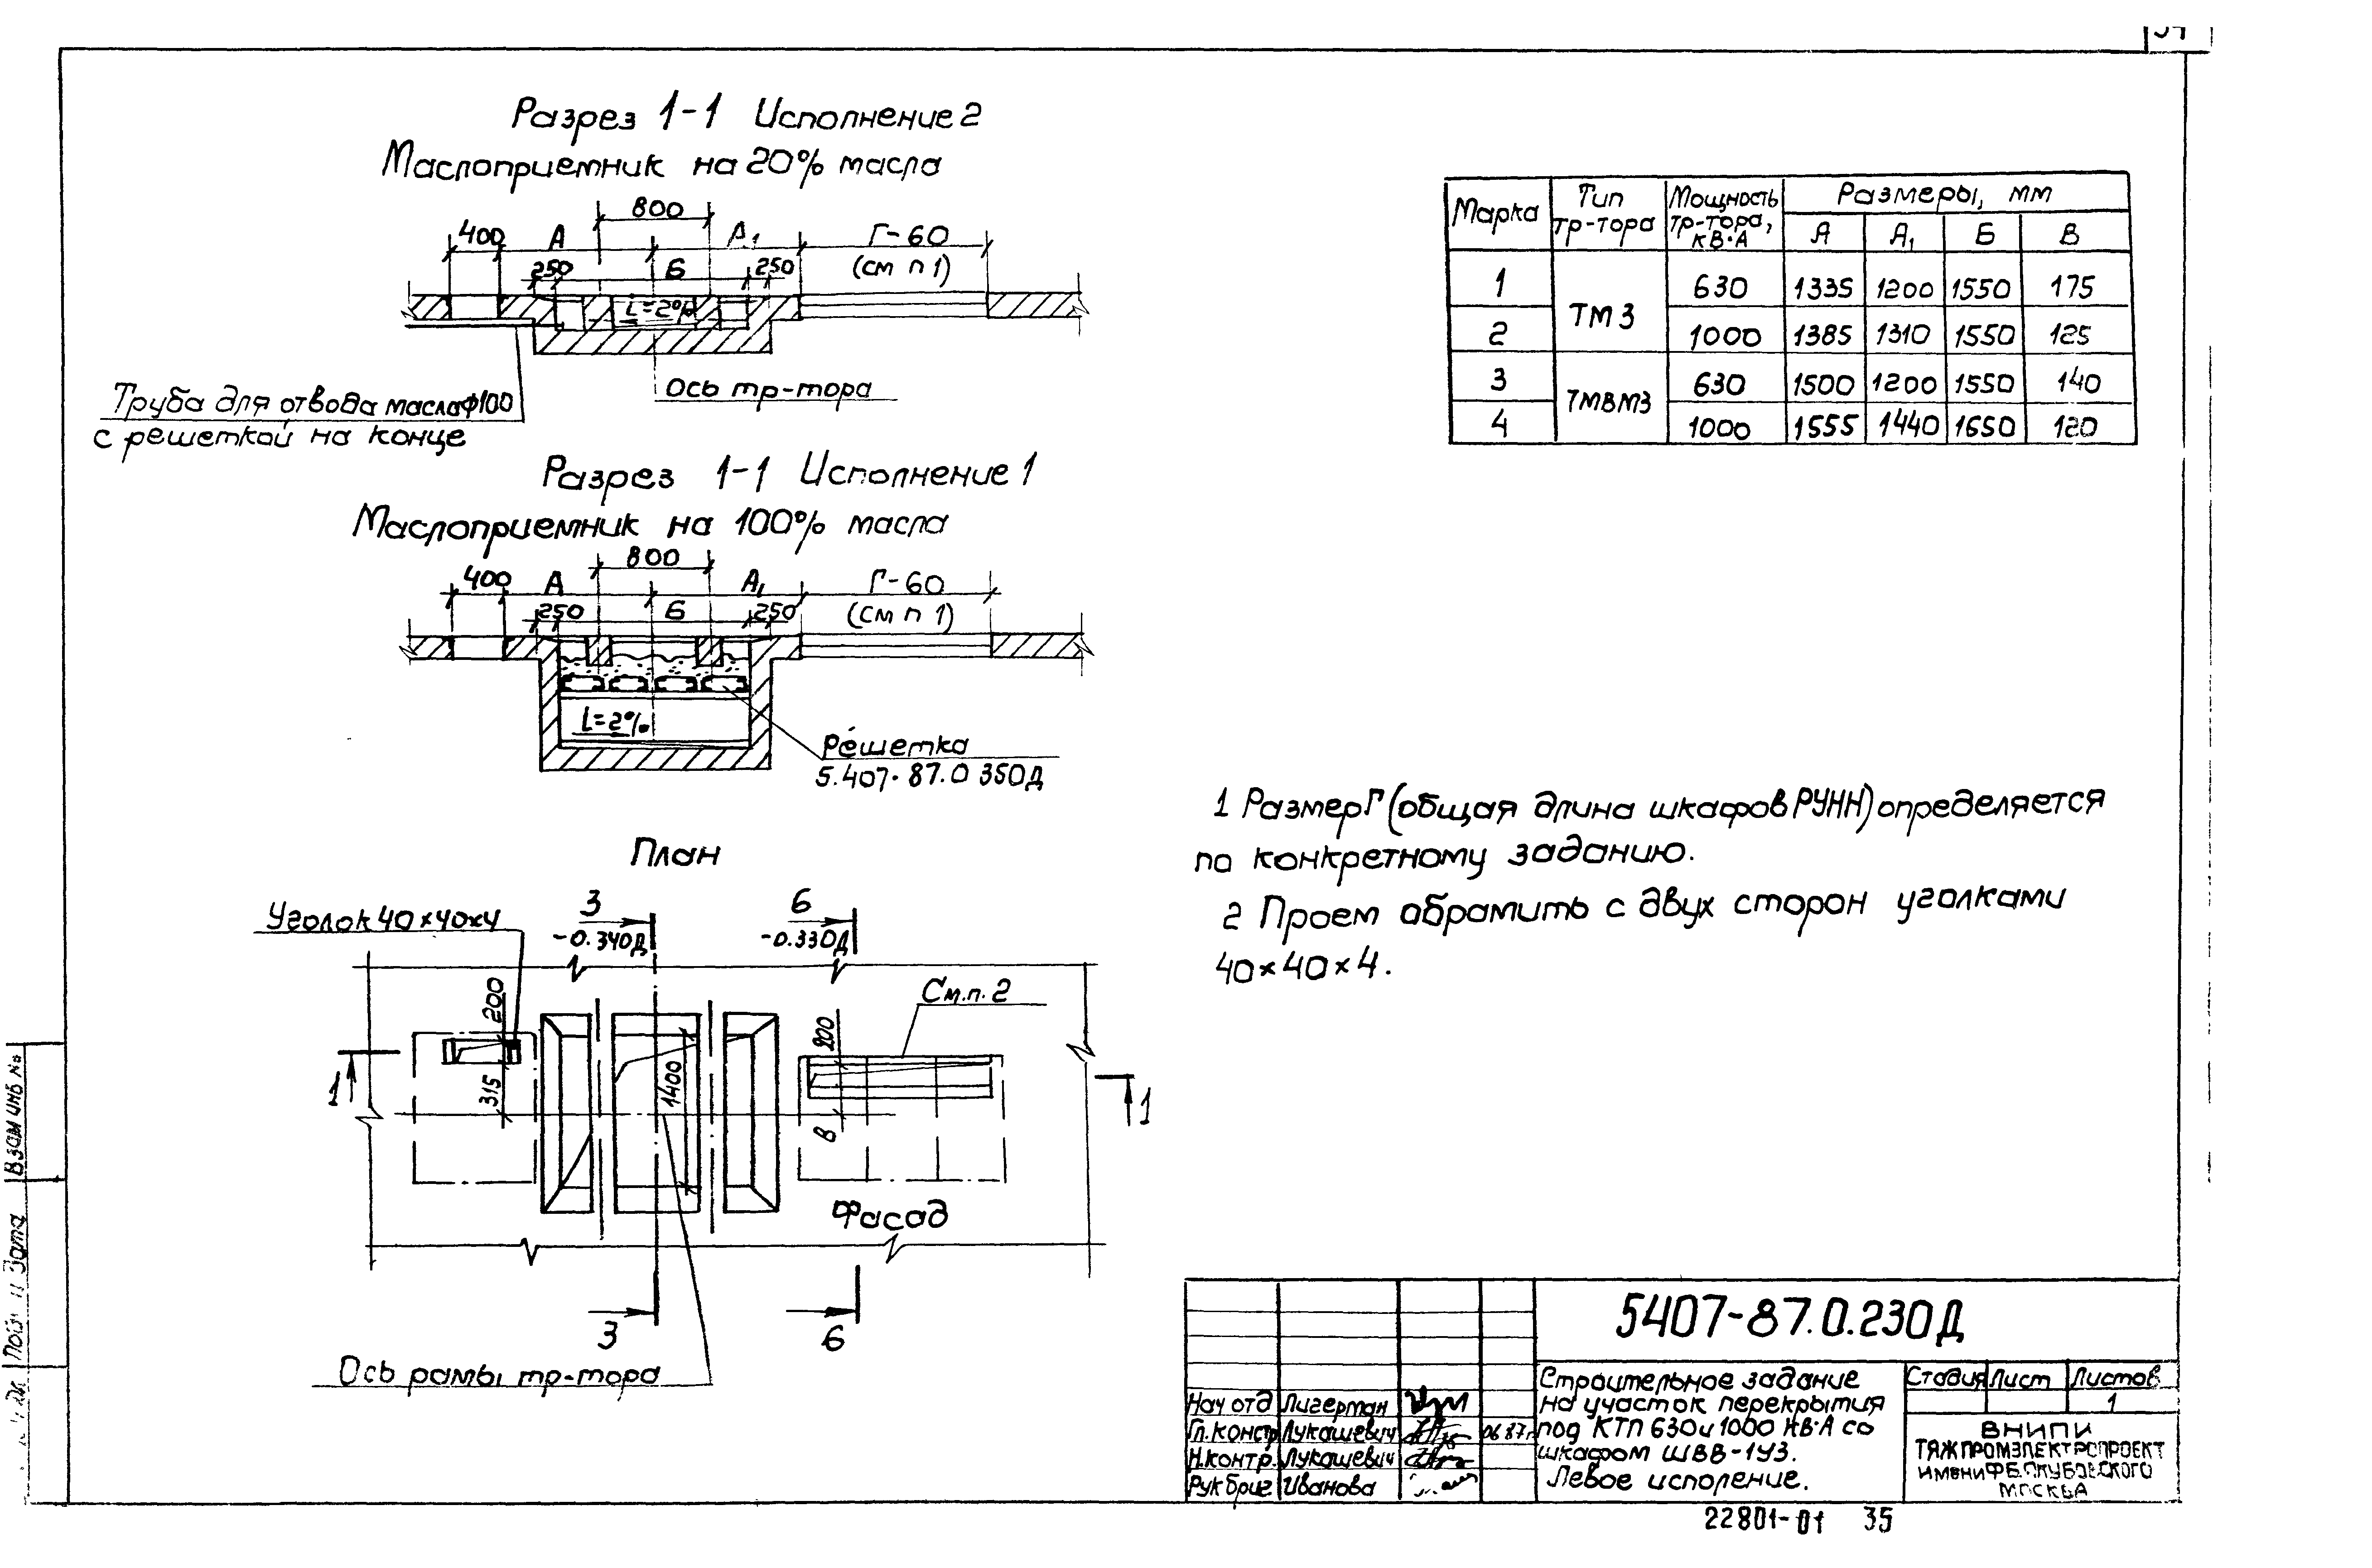 Разрез 1-1 Исполнение 2
Маслоприемник на 20% масла
800
400 А А1 Г-60
250 Б 250 (см п 1)
i=2%
Ось тр-тора
Труба для отвода масла ф100
с решеткой на конце
Разрез 1-1 Исполнение 1
Маслоприемник на 100% масла
800
400 А А1 Г-60
250 Б 250 (см п 1)
i=2%
Решетка
5.407-87.0 350Д
План
Уголок 40×40×4
3 6
-0.340Д -0.330Д
См.п. 2
200
315
1400
200
В
1 1
Фасад
3 6
Ось рамы тр-тора
Марка Тип тр-тора Мощность тр-тора, кВ·А Размеры, мм
А А1 Б В
1 ТМЗ 630 1335 1200 1550 175
2 1000 1385 1310 1550 125
3 ТМВМЗ 630 1500 1200 1550 140
4 1000 1555 1440 1650 120
1 Размер Г (общая длина шкафов РУНН) определяется
по конкретному заданию.
2 Проем обрамить с двух сторон уголками
40×40×4.
5407-87.0.230Д
Строительное задание
на участок перекрытия
под КТП 630 и 1000 кВ·А со
шкафом ШВВ-1У3.
Левое исполение.
Стадия Лист Листов
1
ВНИПИ
ТЯЖПРОМЭЛЕКТРОПРОЕКТ
имени Ф.Б.ЯКУБОВСКОГО
МОСКВА
Нач отд Лигерман
Гл.констр Лукашевич 06 87г
Н.контр. Лукашевич
Рук бриг Иванова
Взам инв №
22801-01 35